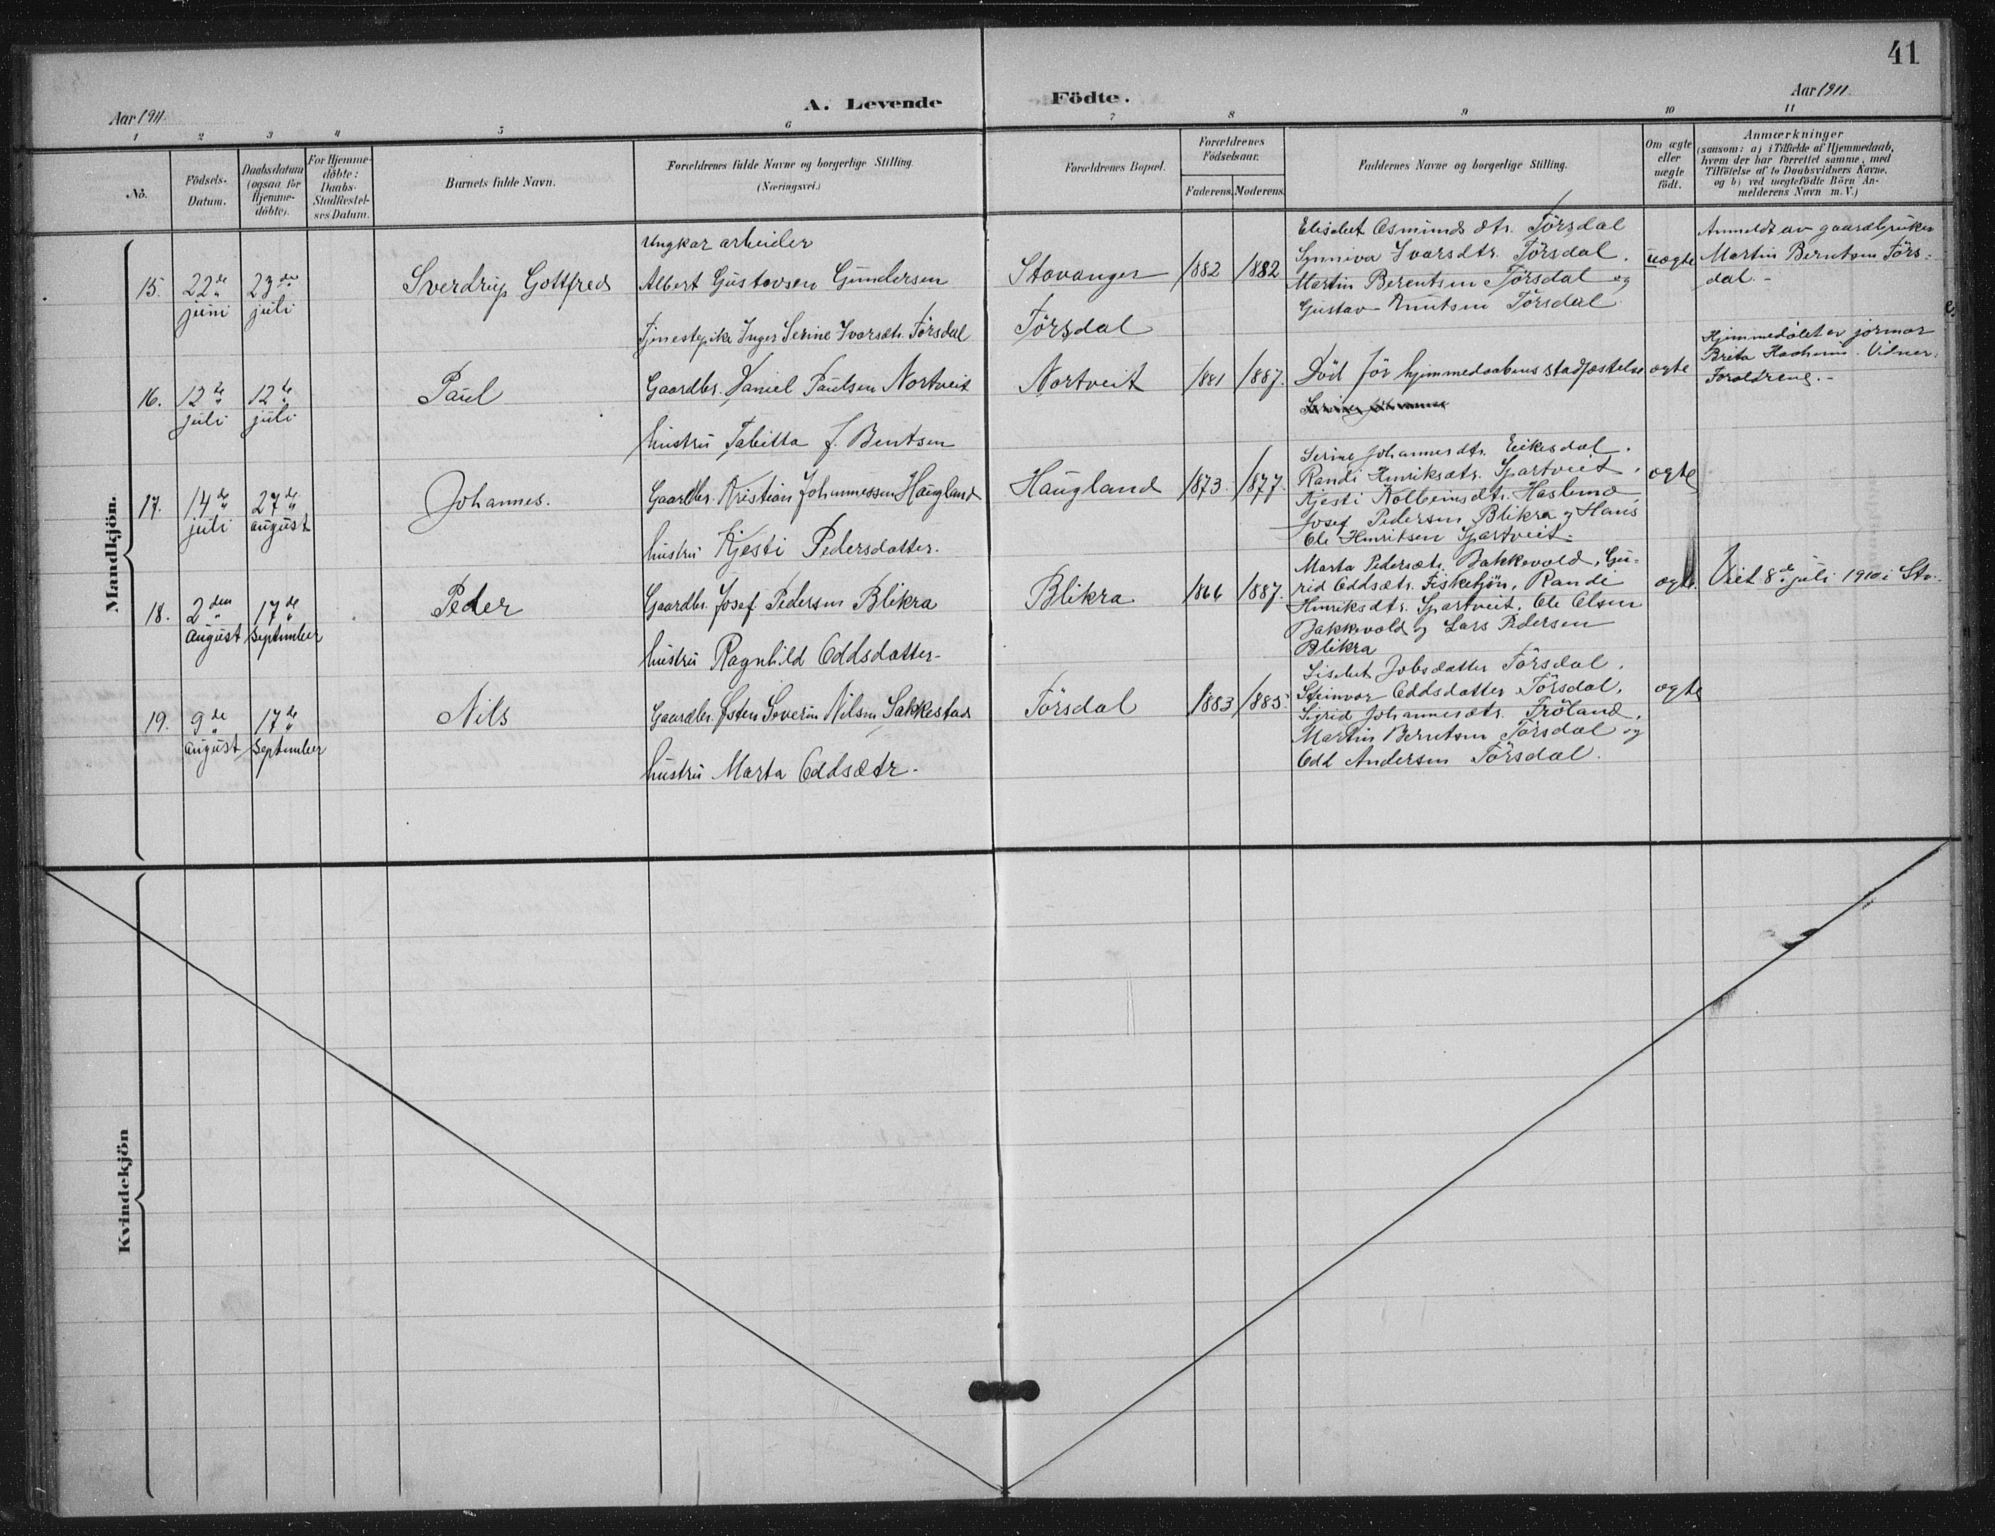 41
Aar 1911.
A. Levende Födte.
Aar 1911.
1 2 3 4 5 6 7 8 9 10 11
No.
Födsels-Datum.
Daabsdatum (ogsaa for Hjemme-döbte).
For Hjemme-döbte: Daabs-Stadfestel-ses Datum.
Barnets fulde Navn.
Forældrenes fulde Navne og borgerlige Stilling.
(Næringsvei.)
Forældrenes Bopæl.
Forældrenes Födselsaar.
Faderens. Moderens.
Faddernes Navne og borgerlige Stilling.
Om ægte eller uægte födt.
Anmærkninger
(saasom: a) i Tilfælde af Hjemmedaab,
hvem der har forrettet samme, med
Tilföielse af to Daabsvidners Navne,
og b) ved uægtefödte Börn An-
melderens Navn m. V.)
Mandkjön.
15. 22de juni 23de juli
Sverdrup Gottfred
Ungkar arbeider
Albert Gustavsen Gundersen
Tjenestepike Inger Serine Ivarsdtr. Törsdal
Stavanger
Törsdal
1882 1882
Elisabet Asmundsdtr. Törsdal
Synniva Ivarsdtr. Törsdal.
Martin Berentsen Törsdal og
Gustav Knutsen Törsdal
uægte
Anmeldt av gaardbruker
Martin Berntsen Törs-
dal.-
16. 12te juli 12te juli
Paul
Gaardbr. Daniel Paulsen Nortveit
hustru Tabitta f. Bentsen
Nortveit
1881 1887.
Död för hjemmedaabens stadfæstelse
ægte
Hjemmedöbt av jormor
Brita Vidner:
Foreldrene.-
17. 14de juli 27de august
Johannes.
Gaardbr. Kristian Johannessen Haugland
hustru Kjesti Pedersdatter.
Haugland
1873. 1877.
Serine Johannesdtr. Eikesdal.
Randi Henriksdtr. Spartveit,
Kjesti Kolbeinsdtr. Haslund,
Josef Pedersen Blikra og Hans
Ole Henriksen Spartveit.
ægte
18. 2den august 17de september
Peder
Gaardbr. Josef Pedersen Blikra
hustru Ragnhild Oddsdatter-
Blikra
1866 1887.
Marta Pedersdtr. Bakkevold, Gu-
rid Oddsdtr. Fisketjön, Randi
Henriksdtr. Spartveit, Ole Olsen
Bakkevold og Lars Pedersen
Blikra
ægte.
Viet 8de juli 1910 i
19. 9de august 17de september
Nils
Gaardbr. Østen Severin Nilsen Sakkestad
hustru Marta Oddsdtr.
Törsdal
1883 1885.
Lisabet Jobsdatter Törsdal,
Steinvor Oddsdatter Törsdal,
Sigrid Johannesdtr. Fröland,
Martin Berntsen Törsdal og
Odd Andersen Törsdal.
ægte
Kvindekjön